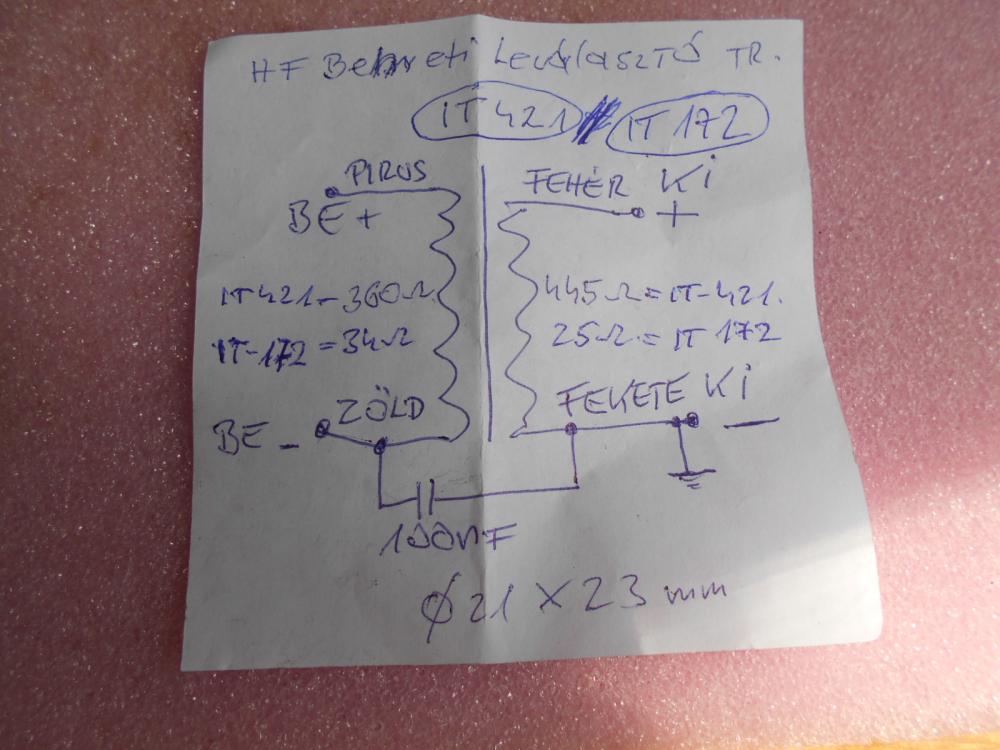 HF Bemeneti Leválasztó TR.
IT 421 IT 172
PIROS
FEHÉR KI
BE +
+
IT421 - 360Ω
445Ω = IT-421.
IT-172 = 34Ω
25Ω = IT 172
ZÖLD
FEKETE KI
BE -
-
100nF
φ21 X 23 mm